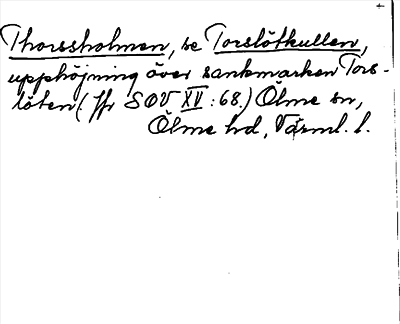 Thorssholmen, se Torslötkullen,
upphöjning över sankmarken Tors-
löten (Jfr SOV XV: 68.) Ölme sn,
Ölme hd, Värml. l.